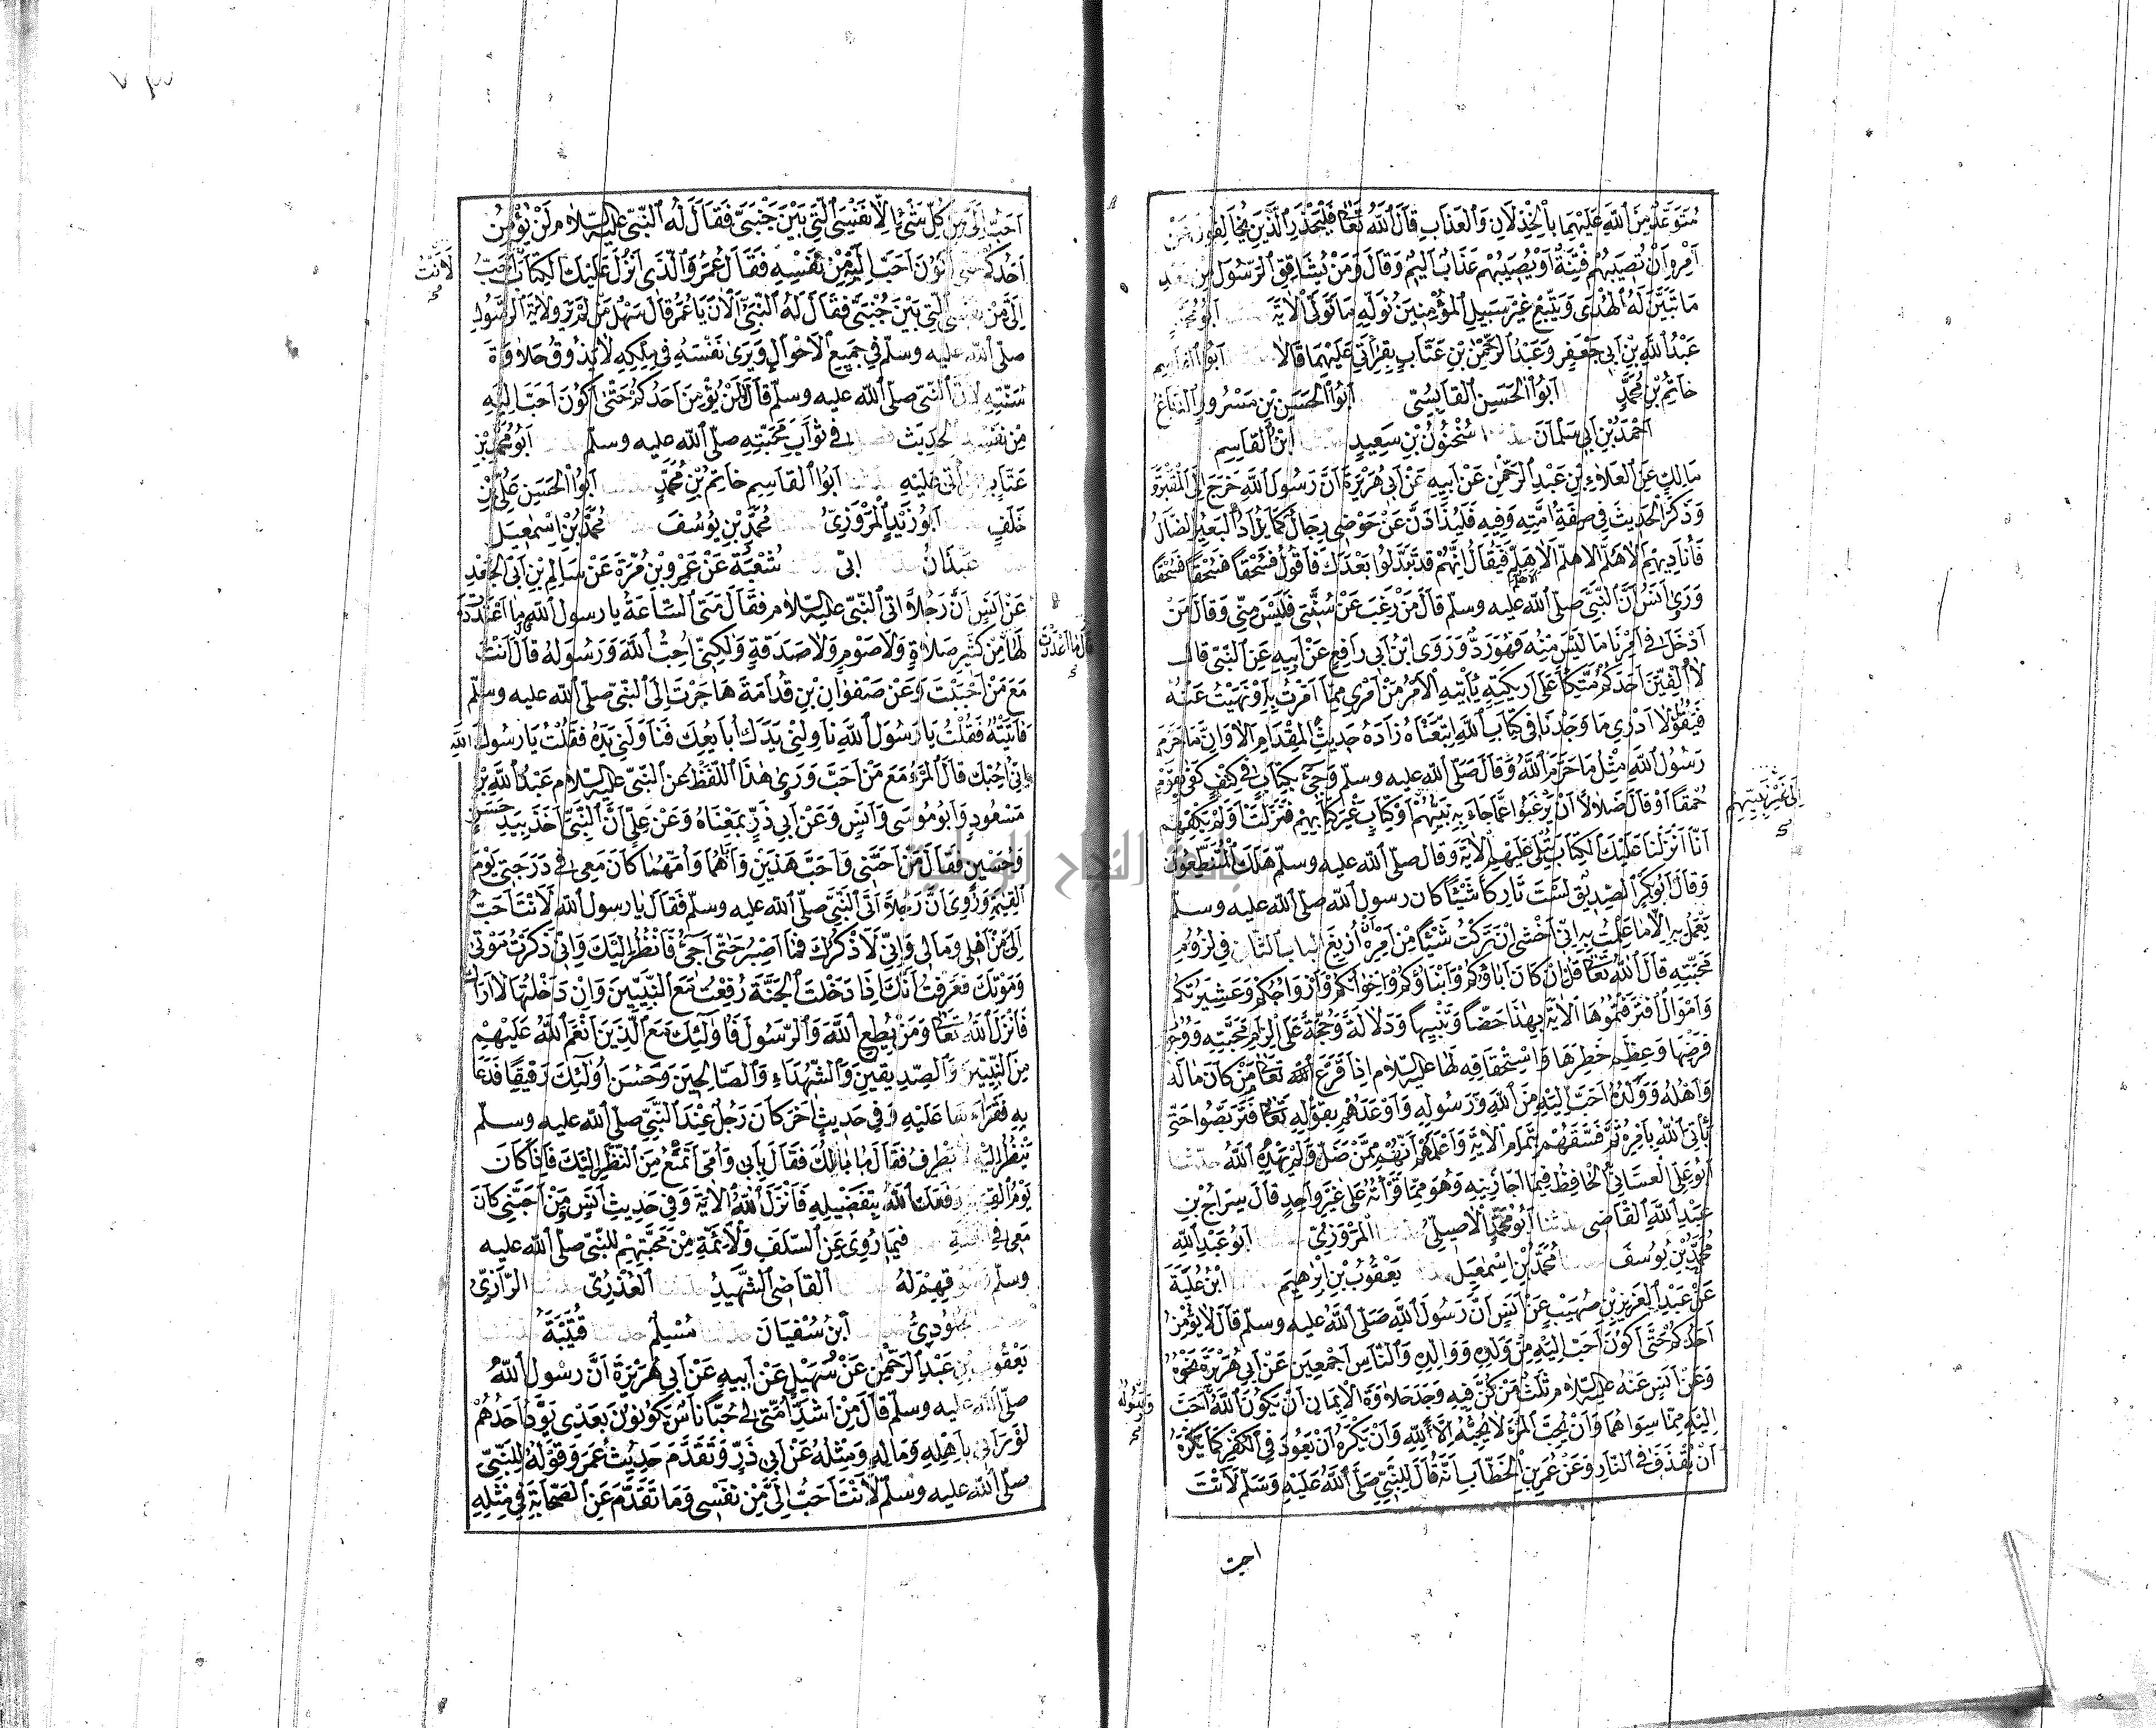 مُتَوَعَّدٌ مِنَ اللهِ عَلَيْهِمَا بِالْخِذْلَانِ وَالْعَذَابِ قَالَ اللهُ تَعَالَى فَلْيَحْذَرِ الَّذِينَ يُخَالِفُونَ عَنْ
اَمْرِهِ اَنْ تُصِيبَهُمْ فِتْنَةٌ اَوْ يُصِيبَهُمْ عَذَابٌ اَلِيمٌ وَقَالَ وَمَنْ يُشَاقِقِ الرَّسُولَ مِنْ بَعْدِ
مَا تَبَيَّنَ لَهُ الْهُدَى وَيَتَّبِعْ غَيْرَ سَبِيلِ الْمُؤْمِنِينَ نُوَلِّهِ مَا تَوَلَّى الْاٰيَةَ اَبُو مُحَمَّدٍ
عَبْدُ اللهِ بْنِ اَبِي جَعْفَرٍ وَعَبْدُ الرَّحْمٰنِ بْنِ عَتَّابٍ بِقِرَاءَتِي عَلَيْهِمَا قَالَا اَبُو الْقَاسِمِ
حَاتِمُ بْنِ مُحَمَّدٍ اَبُو الْحَسَنِ الْقَابِسِيّ اَبُو الْحَسَنِ بْنِ مَسْرُورٍ الدَّبَّاغُ
اَحْمَدُ بْنِ اَبِي سَلْمَانَ سُحْنُونُ بْنِ سَعِيدٍ ابْنُ الْقَاسِمِ
مَالِكٍ عَنِ الْعَلَاءِ بْنِ عَبْدِ الرَّحْمٰنِ عَنْ اَبِيهِ عَنْ اَبِي هُرَيْرَةَ اَنَّ رَسُولَ اللهِ خَرَجَ اِلَى الْمَقْبَرَةِ
وَذَكَرَ الْحَدِيثَ فِي صِفَةِ اُمَّتِهِ وَفِيهِ فَلَيُذَادَنَّ عَنْ حَوْضِي رِجَالٌ كَمَا يُذَادُ الْبَعِيرُ الضَّالُّ
فَاُنَادِيهِمْ اَلَا هَلُمَّ اَلَا هَلُمَّ اَلَا هَلُمَّ فَيُقَالُ اِنَّهُمْ قَدْ تَبَدَّلُوا بَعْدَكَ فَاَقُولُ فَسُحْقًا فَسُحْقًا فَسُحْقًا
وَرَوَى اَنَسٌ اَنَّ النَّبِيَّ صَلَّى اللهُ عليه وسلّم قَالَ مَنْ رَغِبَ عَنْ سُنَّتِي فَلَيْسَ مِنِّي وَقَالَ مَنْ
اَدْخَلَ فِي اَمْرِنَا مَا لَيْسَ مِنْهُ فَهُوَ رَدٌّ وَرَوَى ابْنُ اَبِي رَافِعٍ عَنْ اَبِيهِ عَنِ النَّبِيِّ قال
لَا اُلْفِيَنَّ اَحَدَكُمْ مُتَّكِئًا عَلَى اَرِيكَتِهِ يَأْتِيهِ الْاَمْرُ مِنْ اَمْرِي مِمَّا اَمَرْتُ بِهِ اَوْ نَهَيْتُ عَنْهُ
فَيَقُولُ لَا اَدْرِي مَا وَجَدْنَا فِي كِتَابِ اللهِ اتَّبَعْنَاهُ زَادَهُ حَدِيثُ الْمِقْدَامِ اَلَا وَاِنَّ مَا حَرَّمَ
رَسُولُ اللهِ مِثْلُ مَا حَرَّمَ اللهُ وَقَالَ صَلَّى اللهُ عليه وسلّم وَجِيءَ بِكِتَابٍ فِي كَتِفٍ كَفَى بِقَوْمٍ
حُمْقًا اَوْ قَالَ ضَلَالًا اَنْ يَرْغَبُوا عَمَّا جَاءَ بِهِ نَبِيُّهُمْ اَوْ كِتَابٍ غَيْرِ كِتَابِهِمْ فَنَزَلَتْ اَوَلَمْ يَكْفِهِمْ
اِلَى غَيْرِ نَبِيِّهِمْ
اَنَّا اَنْزَلْنَا عَلَيْكَ الْكِتَابَ يُتْلَى عَلَيْهِمْ الْاٰيَةَ وَقال صلّى الله عليه وسلّم هَلَكَ الْمُتَنَطِّعُونَ
وَقَالَ اَبُو بَكْرٍ الصِّدِّيقُ لَسْتُ تَارِكًا شَيْئًا كان رسول الله صلّى الله عليه وسلّم
يَعْمَلُ بِهِ اِلَّا مَا عَمِلْتُ بِهِ اِنِّي اَخْشَى اِنْ تَرَكْتُ شَيْئًا مِنْ اَمْرِهِ اَنْ اَزِيغَ الباب الثاني فِي لُزُومِ
مَحَبَّتِهِ قَالَ اللهُ تَعَالَى قُلْ اِنْ كَانَ اٰبَاؤُكُمْ وَاَبْنَاؤُكُمْ وَاِخْوَانُكُمْ وَاَزْوَاجُكُمْ وَعَشِيرَتُكُمْ
وَاَمْوَالٌ اقْتَرَفْتُمُوهَا الْاٰيَةَ فَكَفَى بِهٰذَا حَضًّا وَتَنْبِيهًا وَدَلَالَةً وَحُجَّةً عَلَى اِلْزَامِ مَحَبَّتِهِ وَوُجُوبِ
فَرْضِهَا وَعِظَمِ خَطَرِهَا وَاسْتِحْقَاقِهِ لَهَا عليه السّلام اِذْ قَرَّعَ اللهُ تَعَالَى مَنْ كَانَ مَالَهُ
وَاَهْلُهُ وَوَلَدُهُ اَحَبَّ اِلَيْهِ مِنَ اللهِ وَرَسُولِهِ وَاَوْعَدَهُمْ بِقَوْلِهِ تَعَالَى فَتَرَبَّصُوا حَتَّى
يَأْتِيَ اللهُ بِاَمْرِهِ ثُمَّ فَسَّقَهُمْ بِتَمَامِ الْاٰيَةِ وَاَعْلَمَهُمْ اَنَّهُمْ مِمَّنْ ضَلَّ وَلَمْ يَهْدِهِ اللهُ حدّثنا
اَبُو عَلِيٍّ الْغَسَّانِيُّ الْحَافِظُ فِيمَا اَجَازَنِيهِ وَهُوَ مِمَّا قَرَأْتُهُ عَلَى غَيْرِ وَاحِدٍ قَالَ سِرَاجُ بْنِ
عَبْدِ اللهِ الْقَاضِي حدثنا اَبُو مُحَمَّدٍ الْاَصِيلِيُّ الْمَرْوَزِيُّ اَبُو عَبْدِ اللهِ
مُحَمَّدُ بْنِ يُوسُفَ مُحَمَّدُ بْنِ اِسْمٰعِيلَ يَعْقُوبُ بْنِ اِبْرٰهِيمَ ابْنُ عُلَيَّةَ
عَنْ عَبْدِ الْعَزِيزِ بْنِ صُهَيْبٍ عَنْ اَنَسٍ اَنَّ رَسُولَ اللهِ صَلَّى اللهُ عليه وسلّم قَالَ لَا يُؤْمِنُ
اَحَدُكُمْ حَتَّى اَكُونَ اَحَبَّ اِلَيْهِ مِنْ وَلَدِهِ وَوَالِدِهِ وَالنَّاسِ اَجْمَعِينَ عَنْ اَبِي هُرَيْرَةَ نَحْوُهُ
وَعَنْ اَنَسٍ عَنْهُ عليه السّلام ثَلٰثٌ مَنْ كُنَّ فِيهِ وَجَدَ حَلَاوَةَ الْاِيمَانِ اَنْ يَكُونَ اللهُ اَحَبَّ
وَرَسُولُهُ
اِلَيْهِ مِمَّا سِوَاهُمَا وَاَنْ يُحِبَّ الْمَرْءَ لَا يُحِبُّهُ اِلَّا لِلّٰهِ وَاَنْ يَكْرَهَ اَنْ يَعُودَ فِي الْكُفْرِ كَمَا يَكْرَهُ
اَنْ يُقْذَفَ فِي النَّارِ وَعَنْ عُمَرَ بْنِ الْخَطَّابِ اَنَّهُ قَالَ لِلنَّبِيِّ صَلَّى اللهُ عَلَيْهِ وَسَلَّمَ لَاَنْتَ
احبّ
اَحَبُّ اِلَيَّ مِنْ كُلِّ شَيْءٍ اِلَّا نَفْسِي الَّتِي بَيْنَ جَنْبَيَّ فَقَالَ لَهُ النَّبِيّ عليه السّلام لَنْ يُؤْمِنَ
اَحَدُكُمْ حَتَّى اَكُونَ اَحَبَّ اِلَيْهِ مِنْ نَفْسِهِ فَقَالَ عُمَرُ وَالَّذِي اَنْزَلَ عَلَيْكَ الْكِتَابَ اَحَبُّ
لَاَنْتَ
اِلَيَّ مِنْ نَفْسِي الَّتِي بَيْنَ جَنْبَيَّ فَقَالَ لَهُ النَّبِيُّ اَلْاٰنَ يَا عُمَرُ قَالَ سَهْلٌ مَنْ لَمْ يَرَ وِلَايَةَ الرَّسُولِ
صلّى الله عليه وسلّم فِي جَمِيعِ الْاَحْوَالِ وَيَرَى نَفْسَهُ فِي مِلْكِهِ لَا يَذُوقُ حَلَاوَةَ
سُنَّتِهِ لِاَنَّ النَّبِيّ صلّى الله عليه وسلّم قَالَ لَنْ يُؤْمِنَ اَحَدُكُمْ حَتَّى اَكُونَ اَحَبَّ اِلَيْهِ
مِنْ نَفْسِهِ الْحَدِيثَ فصل فِي ثَوَابِ مَحَبَّتِهِ صلّى الله عليه وسلّم اَبُو مُحَمَّدِ بْنِ
عَتَّابٍ بقراءتي عَلَيْهِ اَبُو الْقَاسِمِ حَاتِمُ بْنِ مُحَمَّدٍ اَبُو الْحَسَنِ عَلِيُّ بْنِ
خَلَفٍ اَبُو زَيْدٍ الْمَرْوَزِيُّ مُحَمَّدُ بْنِ يُوسُفَ مُحَمَّدُ بْنِ اِسْمٰعِيلَ
عَبْدَانُ اَبِي شُعْبَةُ عَنْ عَمْرِو بْنِ مُرَّةَ عَنْ سَالِمِ بْنِ اَبِي الْجَعْدِ
عَنْ اَنَسٍ اَنَّ رَجُلًا اَتَى النَّبِيّ عليه السّلام فَقَالَ مَتَى السَّاعَةُ يا رسول الله مَا اَعْدَدْتَ
قَالَ مَا اَعْدَدْتُ
لَهَا مِنْ كَثِيرِ صَلَاةٍ وَلَا صَوْمٍ وَلَا صَدَقَةٍ وَلٰكِنِّي اُحِبُّ اللهَ وَرَسُولَهُ قَالَ اَنْتَ
مَعَ مَنْ اَحْبَبْتَ وَعَنْ صَفْوَانِ بْنِ قُدَامَةَ هَاجَرْتُ اِلَى النَّبِيّ صلّى الله عليه وسلّم
فَاَتَيْتُهُ فَقُلْتُ يَا رَسُولَ اللهِ نَاوِلْنِي يَدَكَ اُبَايِعْكَ فَنَاوَلَنِي يَدَهُ فَقُلْتُ يَا رَسُولَ اللهِ
اِنِّي اُحِبُّكَ قَالَ الْمَرْءُ مَعَ مَنْ اَحَبَّ وَرَوَى هٰذَا اللَّفْظَ عَنِ النَّبِيّ عليه السّلام عَبْدُ اللهِ بْنُ
مَسْعُودٍ وَاَبُو مُوسَى وَاَنَسٍ وَعَنْ اَبِي ذَرٍّ بِمَعْنَاهُ وَعَنْ عَلِيٍّ اَنَّ النَّبِيَّ اَخَذَ بِيَدِ حَسَنٍ
وَحُسَيْنٍ فَقَالَ مَنْ اَحَبَّنِي وَاَحَبَّ هٰذَيْنِ وَاَبَاهُمَا وَاُمَّهُمَا كَانَ مَعِي فِي دَرَجَتِي يَوْمَ
الْقِيٰمَةِ وَرُوِيَ اَنَّ رَجُلًا اَتَى النَّبِيَّ صلّى الله عليه وسلّم فَقَالَ يا رسول الله لَاَنْتَ اَحَبُّ
اِلَيَّ مِنْ اَهْلِي وَمَالِي وَاِنِّي لَاَذْكُرُكَ فَمَا اَصْبِرُ حَتَّى اَجِيءَ فَاَنْظُرَ اِلَيْكَ وَاِنِّي ذَكَرْتُ مَوْتِي
وَمَوْتَكَ فَعَرَفْتُ اَنَّكَ اِذَا دَخَلْتَ الْجَنَّةَ رُفِعْتَ مَعَ النَّبِيِّينَ وَاِنْ دَخَلْتُهَا لَا اَرَاكَ
فَاَنْزَلَ اللهُ تَعَالَى وَمَنْ يُطِعِ اللهَ وَالرَّسُولَ فَاُولٰئِكَ مَعَ الَّذِينَ اَنْعَمَ اللهُ عَلَيْهِمْ
مِنَ النَّبِيِّينَ وَالصِّدِّيقِينَ وَالشُّهَدَاءِ وَالصَّالِحِينَ وَحَسُنَ اُولٰئِكَ رَفِيقًا فَدَعَا
بِهِ فَقَرَاَهَا عَلَيْهِ وَفِي حَدِيثٍ اٰخَرَ كَانَ رَجُلٌ عِنْدَ النَّبِيِّ صلّى الله عليه وسلّم
يَنْظُرُ اِلَيْهِ لَا يَطْرِفُ فَقَالَ مَا بَالُكَ فَقَالَ بِاَبِي وَاُمِّي اَتَمَتَّعُ مِنَ النَّظَرِ اِلَيْكَ فَاِذَا كَانَ
يَوْمُ الْقِيٰمَةِ رَفَعَكَ اللهُ بِتَفْضِيلِهِ فَاَنْزَلَ اللهُ الْاٰيَةَ وَفِي حَدِيثِ اَنَسٍ مَنْ اَحَبَّنِي كَانَ
مَعِي فِي الْجَنَّةِ فِيمَا رُوِيَ عَنِ السَّلَفِ وَالْاَئِمَّةِ مِنْ مَحَبَّتِهِمْ لِلنَّبِيّ صلّى الله عليه
وسلّم وَشَوْقِهِمْ لَهُ الْقَاضِي الشَّهِيدُ الْعُذْرِيُّ الرَّازِيُّ
الْجُلُودِيُّ ابْنُ سُفْيَانَ مُسْلِمٌ قُتَيْبَةُ
يَعْقُوبُ بْنِ عَبْدِ الرَّحْمٰنِ عَنْ سُهَيْلٍ عَنْ اَبِيهِ عَنْ اَبِي هُرَيْرَةَ اَنَّ رسول اللهِ
صلّى الله عليه وسلّم قَالَ مِنْ اَشَدِّ اُمَّتِي لِي حُبًّا نَاسٌ يَكُونُونَ بَعْدِي يَوَدُّ اَحَدُهُمْ
لَوْ رَاٰنِي بِاَهْلِهِ وَمَالِهِ وَمِثْلُهُ عَنْ اَبِي ذَرٍّ وَتَقَدَّمَ حَدِيثُ عُمَرَ وَقَوْلُهُ لِلنَّبِيّ
صلّى الله عليه وسلّم لَاَنْتَ اَحَبُّ اِلَيَّ مِنْ نَفْسِي وَمَا تَقَدَّمَ عَنِ الصَّحَابَةِ فِي مِثْلِهِ
جامعة النجاح الوطنية